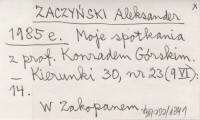 ZACZYŃSKI Aleksander x
1985 e. Moje spotkania
z prof. Konradem Górskim.
— Kierunki 30, nr 23 (9 VI):
14.
W Zakopanem